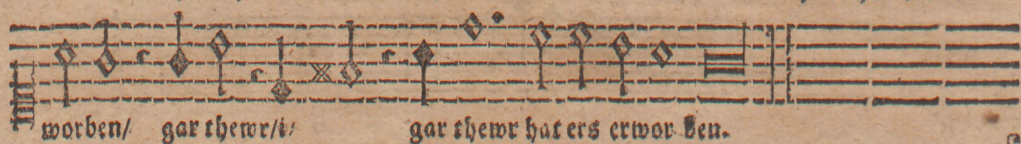 worben/ gar thewr/i/ gar thewr hat ers erwor ben.